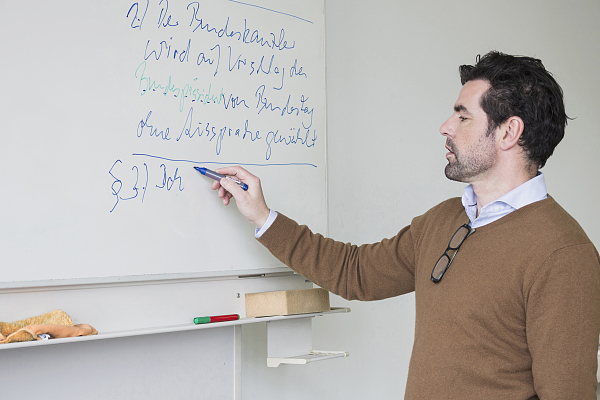 2.) Der Bundeskanzler
wird auf Vorschlag des
Bundespräsidenten vom Bundestag
ohne Aussprache gewählt
§ 3.)